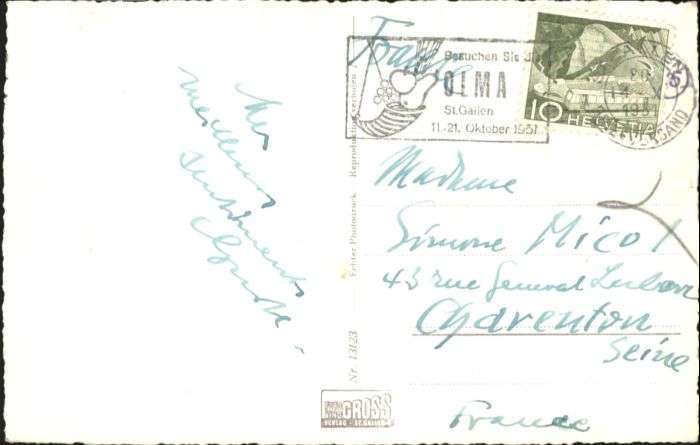 Mes
meilleurs
sentiments
Nr. 13123
Echter Photodruck
Reproduktion verboten
GROSS
VERLAG - ST. GALLEN
France
Besuchen Sie die
OLMA
St.Gallen
11.-21. Oktober 1951
10 HELVETIA
Madame
Simone Micot
43 rue General Leclerc
Charenton
Seine
France